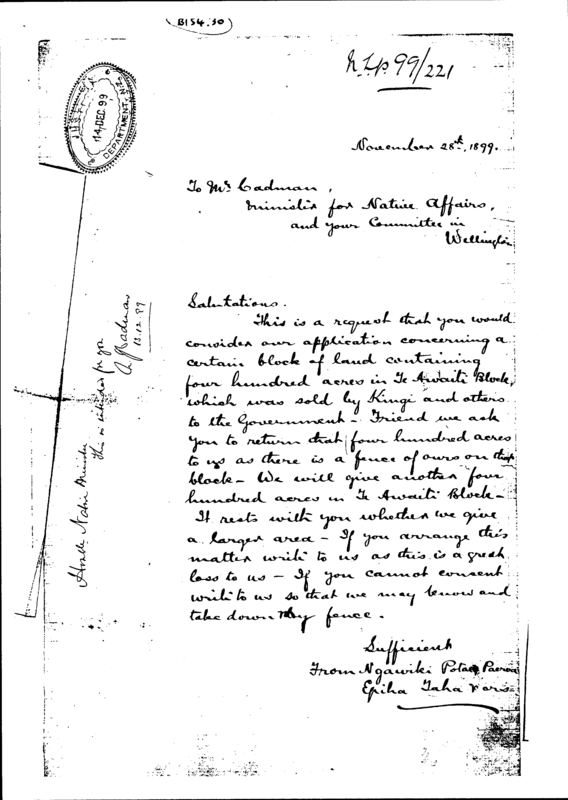 B154.50
N.L.P. 99/221
JUSTICE
14. DEC. 99
DEPARTMENT, N.Z.
November 28th, 1899.
To Mr. Cadman,
Minister for Native Affairs,
and your Committee in
Wellington
Salutations.
This is a request that you would
consider our application concerning a
certain block of land containing
four hundred acres in Te Awaiti Block,
which was sold by Kingi and others
to the Government - Friend we ask
you to return that four hundred acres
to us as there is a fence of ours on that
block - We will give another four
hundred acres in Te Awaiti Block -
It rests with you whether we give
a larger area - If you arrange this
matter write to us as this is a great
loss to us - If you cannot consent
write to us so that we may know and
take down my fence.
Sufficient
From Ngawiki
Epiha Taha
Honble Native Minister
This is intended for you
A J Cadman
12.12.99